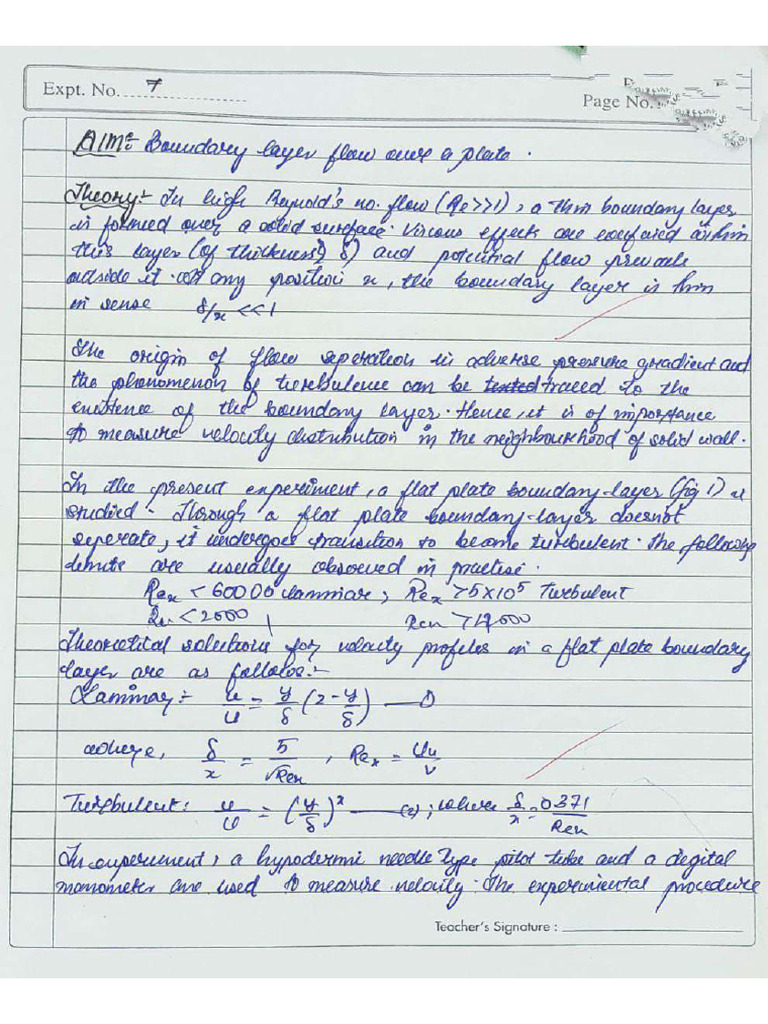 Expt. No. 7
Page No.
AIM:- Boundary layer flow over a plate.
Theory:- In high Reynold's no. flow (Re>>1), a thin boundary layer
is formed over a solid surface. Viscous effects are confined within
this layer (of thickness) δ) and potential flow prevails
outside it. at any position x, the boundary layer is thin
in sense δ/x <<1
The origin of flow seperation in adverse pressure gradient and
the phenomenon of turbulence can be traced to the
existence of the boundary layer. Hence, it is of importance
to measure velocity distribution in the neighbourhood of solid wall.
In the present experiment, a flat plate boundary-layer (fig 1) is
studied. Through a flat plate boundary-layer doesnot
seperate, it undergoes transition to become turbulent. The following
limits are usually observed in practise.
Rex < 60000 lammiar; Rex >5×10⁵ Turbulent
< 2000 >17000
Theoretital solutions for velocity profiles in a flat plate boundary
layer are as follows:-
Lammiar:- u/U = y/δ (2-y/δ) — ①
where, δ/x = 5/√Rex , Rex = Ux/v
Turbulent: u/U = (y/δ)ˣ — (2); where δ/x = 0.371/Rex
In experiment, a hypodermic needle Type pitot tube and a degital
manometer are used to measure velocity. The experimental procedure
Teacher's Signature :